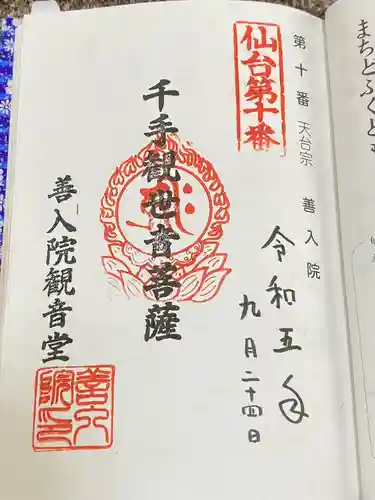 第十番 天台宗 善入院
仙台第十番
令和五年
九月二十四日
千手観世音菩薩
善入院観音堂
善入院印